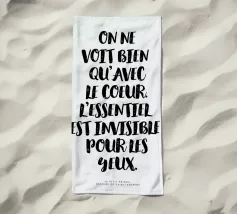 ON NE
VOIT BIEN
QU'AVEC
LE COEUR.
L'ESSENTIEL
EST INVISIBLE
POUR LES
YEUX.